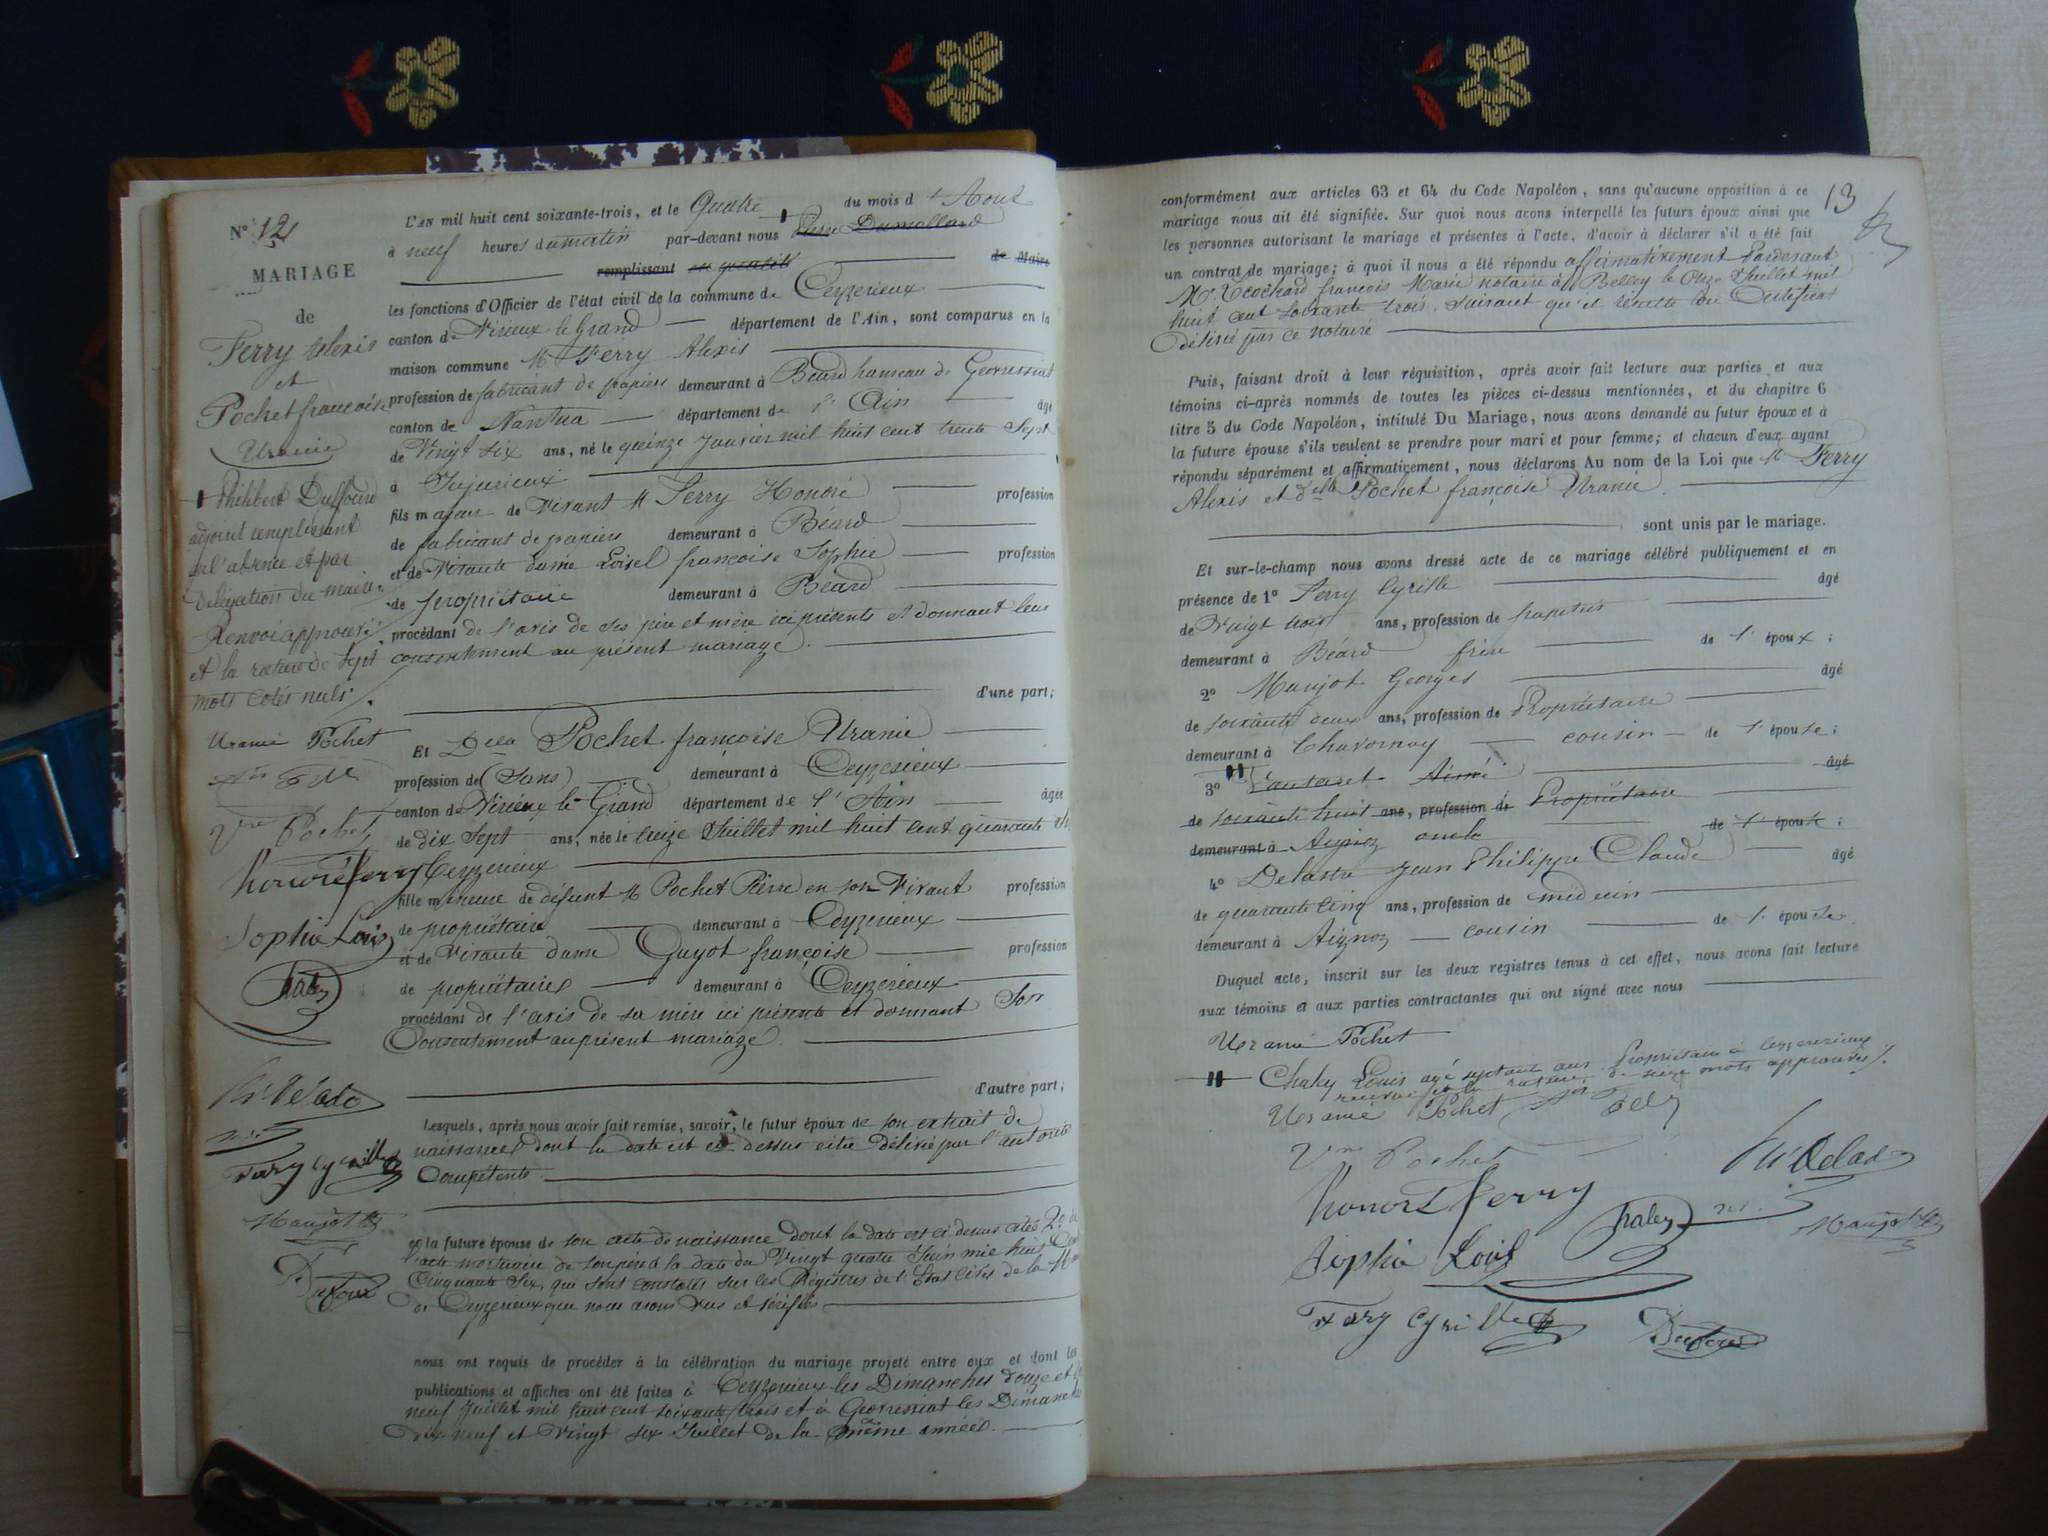 N° 12
MARIAGE
de
Ferry Alexis
et
Pochet françoise
Uranie
Philibert Duffour
adjoint remplissant
en l'absence et par
délégation du maire.
Renvoi approuvé
et la rature de sept
mots cotés nuls.
Uranie Pochet
Vve Pochet
Honoré ferry
Sophie Loisel
Chaley
Ferry Cyrille
Maujot
Dufour
L'AN mil huit cent soixante-trois, et le Quatre du mois d'Aout
à neuf heures du matin par-devant nous Pierre Dumollard
remplissant en qualité de Maire
les fonctions d'Officier de l'état civil de la commune de Ceyzerieux
canton de Virieux le Grand département de l'Ain, sont comparus en la
maison commune Mr Ferry Alexis
profession de fabricant de papiers demeurant à Béard hameau de Géovressiat
canton de Nantua département de l'Ain âgé
de Vingt six ans, né le quinze Janvier mil huit cent trente Sept
à Jujurieux
fils majeur de Vivant Mr Ferry Honoré profession
de fabricant de papiers demeurant à Béard
et de Vivante dame Loisel françoise Sophie profession
de propriétaire demeurant à Béard
procédant de l'avis de ses père et mère ici présents et donnant leur
consentement au présent mariage.
d'une part;
Et Delle Pochet françoise Uranie
profession de (Sans) demeurant à Ceyzerieux
canton de Virieux le Grand département de l'Ain âgée
de dix Sept ans, née le Juillet mil huit cent quarante
Ceyzerieux
fille mineure de défunt Mr Pochet Pierre en son Vivant profession
de propriétaire demeurant à Ceyzerieux
et de Vivante dame Guyot françoise profession
de propriétaire demeurant à Ceyzerieux
procédant de l'avis de sa mère ici présente et donnant Son
Consentement au présent mariage.
d'autre part;
Lesquels, après nous avoir fait remise, savoir, le futur époux de son extrait de
naissance dont la date est ci-dessus citée délivré par l'autorité
Compétente
et la future épouse de son acte de naissance dont la date est ci dessus citée 2° de
l'acte mortuaire de son père à la date du Vingt quatre Juin mil huit Cent
Cinquante Six, qui sont constatés sur les Régistres de l'Etat civil de la
de Ceyzerieux que nous avons Vus et vérifiés
nous ont requis de procéder à la célébration du mariage projeté entre eux et dont les
publications et affiches ont été faites à Ceyzerieux les Dimanches douze et
neuf Juillet mil huit cent soixante trois et à Géovressiat les Dimanches
dix neuf et Vingt six Juillet de la même année.
13
conformément aux articles 63 et 64 du Code Napoléon, sans qu'aucune opposition à ce
mariage nous ait été signifiée. Sur quoi nous avons interpellé les futurs époux ainsi que
les personnes autorisant le mariage et présentes à l'acte, d'avoir à déclarer s'il a été fait
un contrat de mariage; à quoi il nous a été répondu affirmativement Pardevant
Mr Trochard françois Marie notaire à Belley le Onze Juillet mil
huit cent soixante trois, suivant qu'il résulte du Certificat
délivré par ce notaire
Puis, faisant droit à leur réquisition, après avoir fait lecture aux parties et aux
témoins ci-après nommés de toutes les pièces ci-dessus mentionnées, et du chapitre 6
titre 5 du Code Napoléon, intitulé Du Mariage, nous avons demandé au futur époux et à
la future épouse s'ils veulent se prendre pour mari et pour femme; et chacun d'eux ayant
répondu séparément et affirmativement, nous déclarons Au nom de la Loi que Mr Ferry
Alexis et delle Pochet françoise Uranie
sont unis par le mariage.
Et sur-le-champ nous avons dressé acte de ce mariage célébré publiquement et en
présence de 1° Ferry Cyrille âgé
de Vingt trois ans, profession de papetier
demeurant à Béard frère de l'époux;
2° Maujot Georges âgé
de soixante deux ans, profession de Propriétaire
demeurant à Chavornay cousin de l'épouse;
3° Aimé âgé
de soixante huit ans, profession de Propriétaire
demeurant à Aignoz oncle de l'épouse;
4° Jean Philippe Claude âgé
de quarante cinq ans, profession de médecin
demeurant à Aignoz cousin de l'épouse
Duquel acte, inscrit sur les deux registres tenus à cet effet, nous avons fait lecture
aux témoins et aux parties contractantes qui ont signé avec nous
Uranie Pochet
Chaley Louis agé septante ans Propriétaire à Ceyzerieux
renvoi et la rature de seize mots approuvés
Uranie Pochet
Vve Pochet
Honoré ferry
Chaley
Maujot
Sophie Loisel
Ferry Cyrille
Dufour